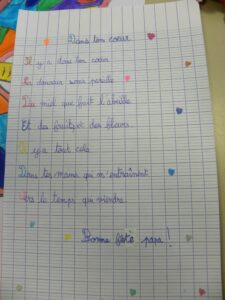 Dans ton coeur
Il y a dans ton coeur
La douceur sans pareille
Du miel que fait l'abeille
Et des fruits, et des fleurs.
Il y a tout cela
Dans tes mains qui m'entraînent
Vers le temps qui viendra.
Bonne fête papa !